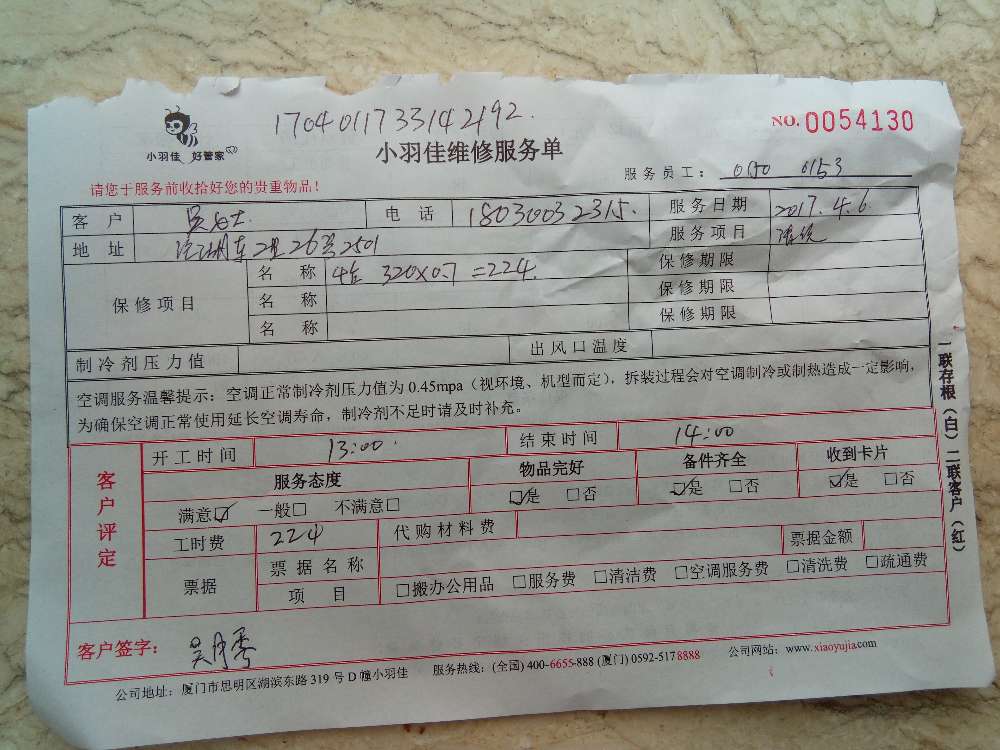 1704011733142192.
NO. 0054130
小羽佳 好管家
小羽佳维修服务单
服务员工： 0150 0153
请您于服务前收拾好您的贵重物品！
客户 吴女士 电话 18030032315. 服务日期 2017.4.6.
地址 26号2501 服务项目 清洗
保修项目 名称 320×0.7=224. 保修期限
名称 保修期限
名称 保修期限
制冷剂压力值 出风口温度
空调服务温馨提示：空调正常制冷剂压力值为 0.45mpa（视环境、机型而定），拆装过程会对空调制冷或制热造成一定影响，
为确保空调正常使用延长空调寿命，制冷剂不足时请及时补充。
客户评定
开工时间 13:00. 结束时间 14:00
服务态度 物品完好 备件齐全 收到卡片
满意☑ 一般□ 不满意□ ☑是 □否 ☑是 □否 ☑是 □否
工时费 224 代购材料费 票据金额
票据 票据名称
项目 □搬办公用品 □服务费 □清洁费 □空调服务费 □清洗费 □疏通费
客户签字： 吴月秀
公司地址：厦门市思明区湖滨东路 319 号 D 幢小羽佳 服务热线：(全国) 400-6655-888 (厦门) 0592-5178888 公司网站：www.xiaoyujia.com
一联存根（白）二联客户（红）